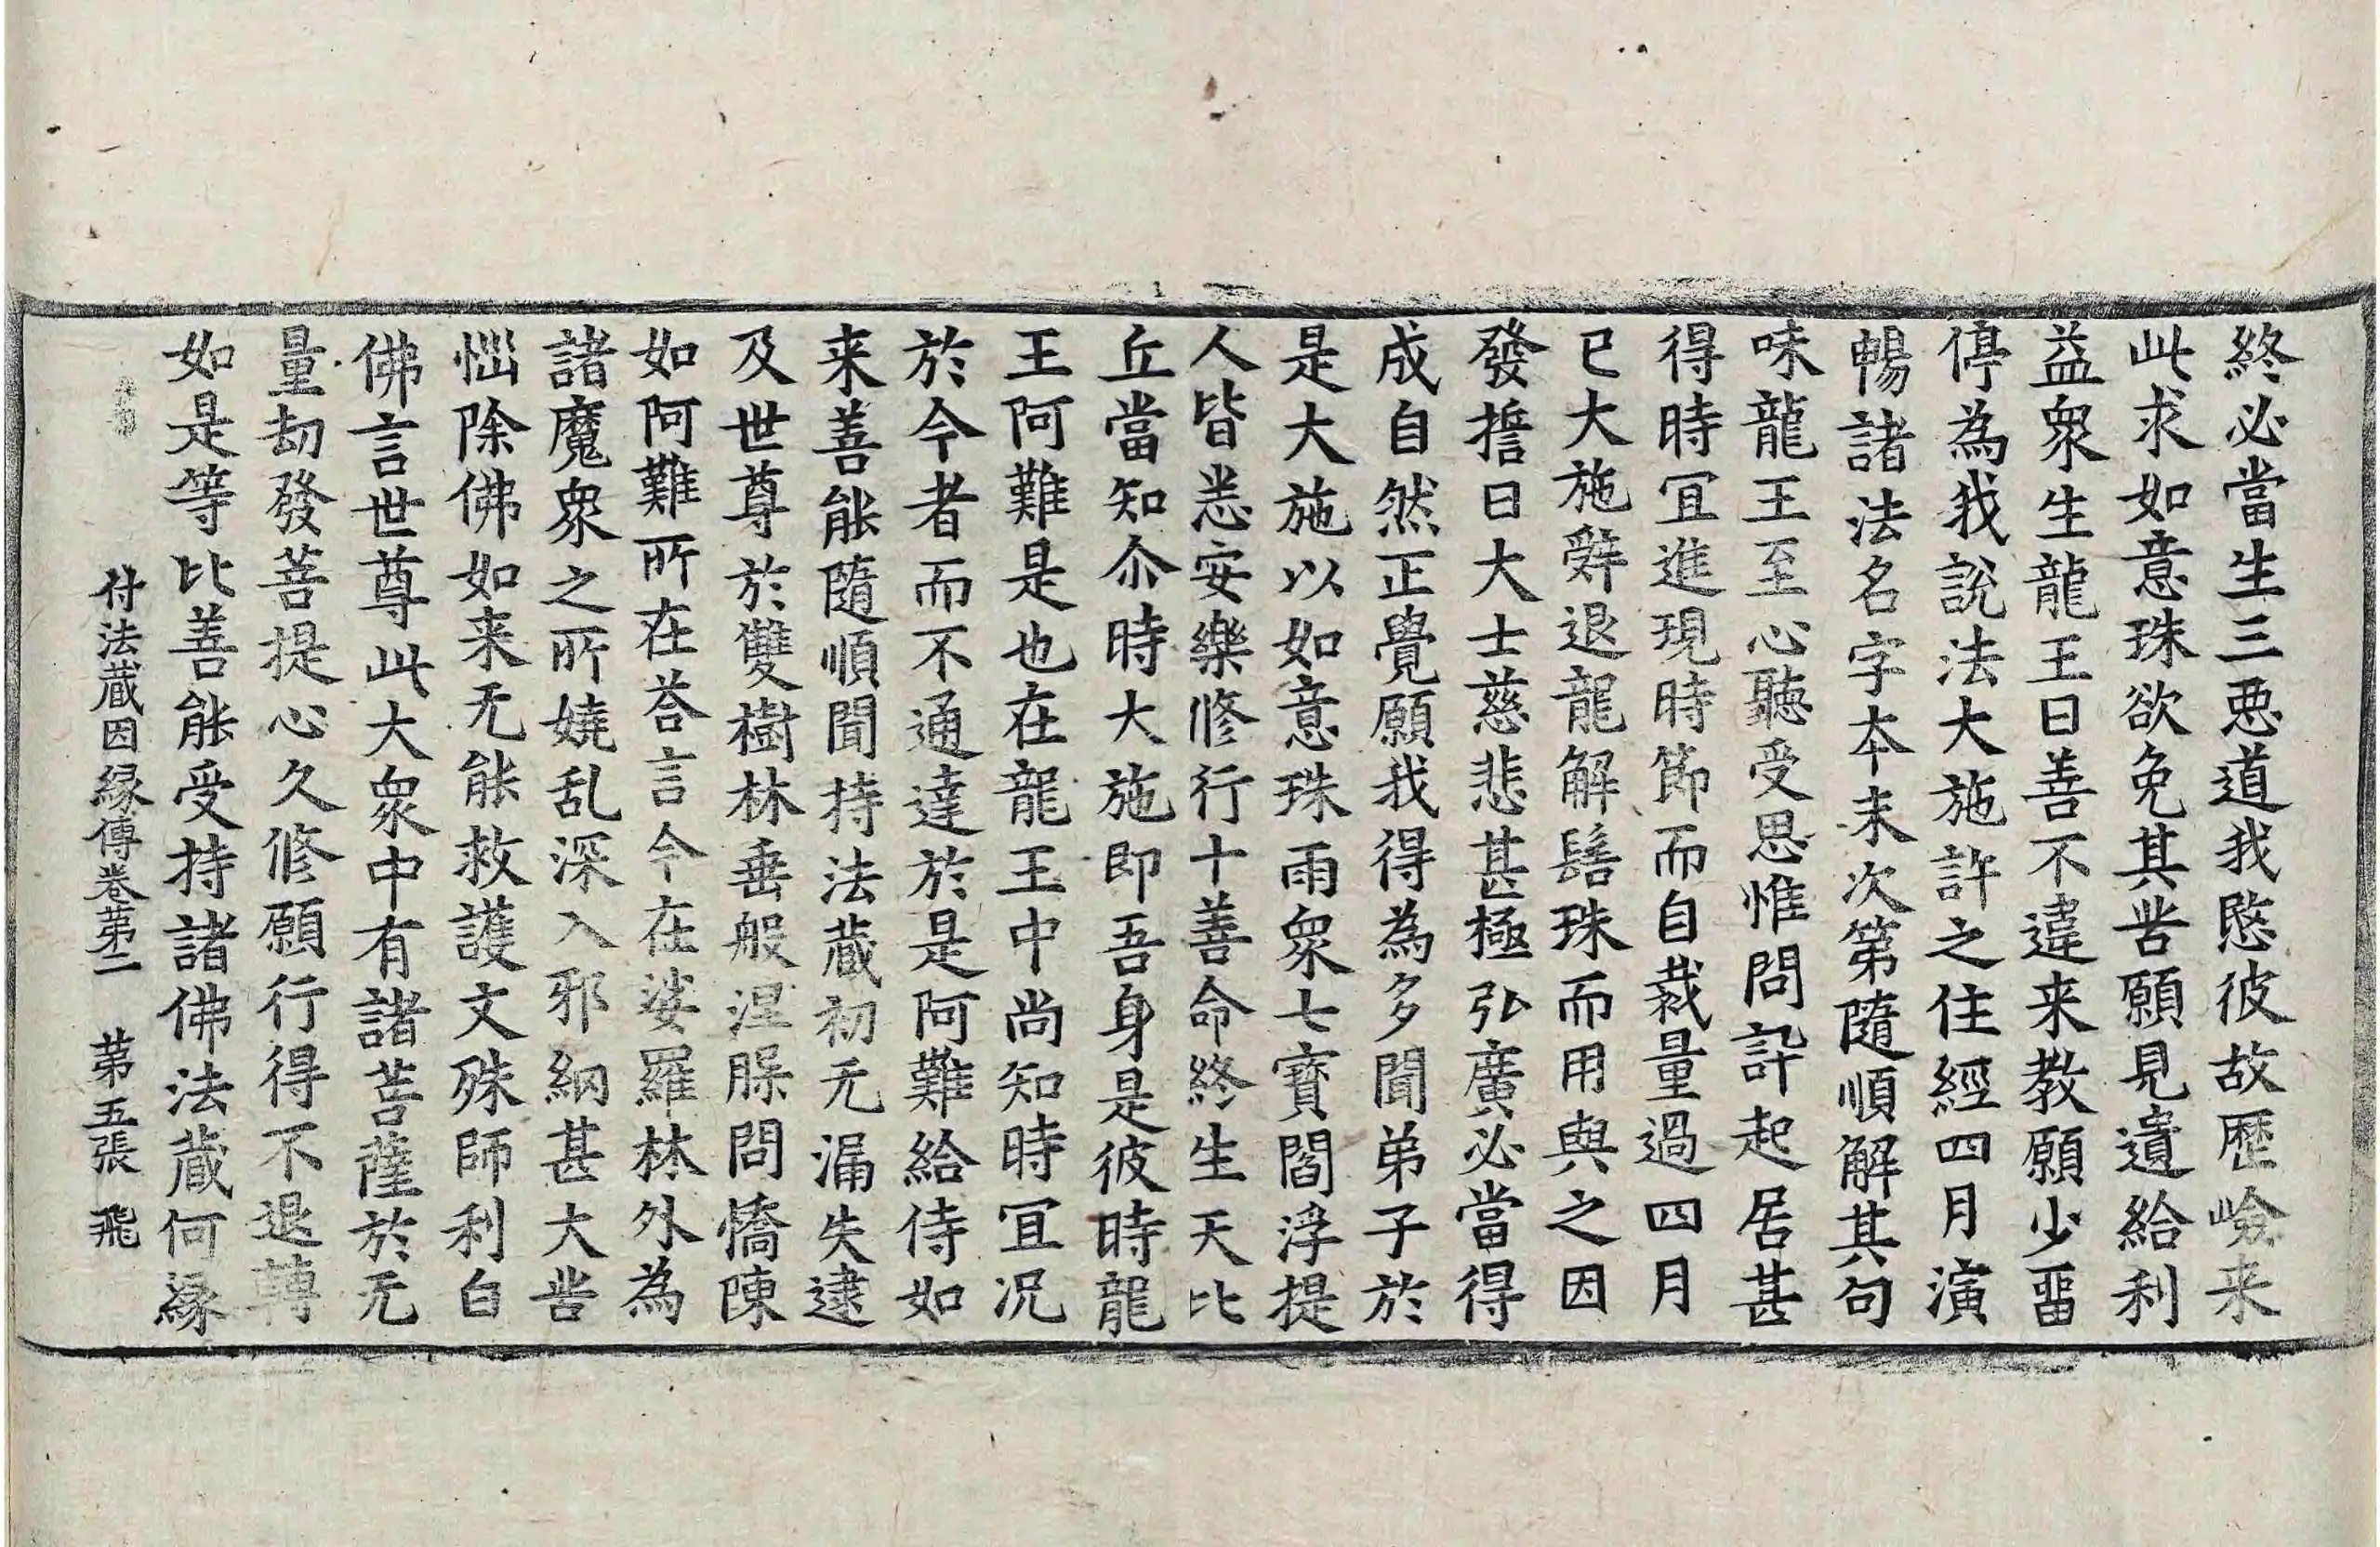 終必當生三惡道我愍彼故歷嶮来
此求如意珠欲免其苦願見遺給利
益衆生龍王曰善不違来教願少畱
停為我說法大施許之住經四月演
暢諸法名字本末次第隨順解其句
味龍王至心聽受思惟問訊起居甚
得時冝進現時節而自裁量過四月
已大施辭退龍解髻珠而用與之因
發擔曰大士慈悲甚極弘廣必當得
成自然正覺願我得為多聞弟子於
是大施以如意珠雨衆七寶閻浮提
人皆悉安樂修行十善命終生天比
丘當知尒時大施即吾身是彼時龍
王阿難是也在龍王中尚知時冝况
於今者而不通達於是阿難給侍如
来善能隨順聞持法蔵初无漏失逮
及世尊於雙樹林垂般涅㬳問憍陳
如阿難所在荅言今在娑羅林外為
諸魔衆之所嬈乱深入邪網甚大苦
惱除佛如来无能救護文殊師利白
佛言世尊此大衆中有諸菩薩於无
量劫發菩提心久修願行得不退轉
如是等比善能受持諸佛法蔵何緣
付法蔵因緣傳卷第二 第五張 飛